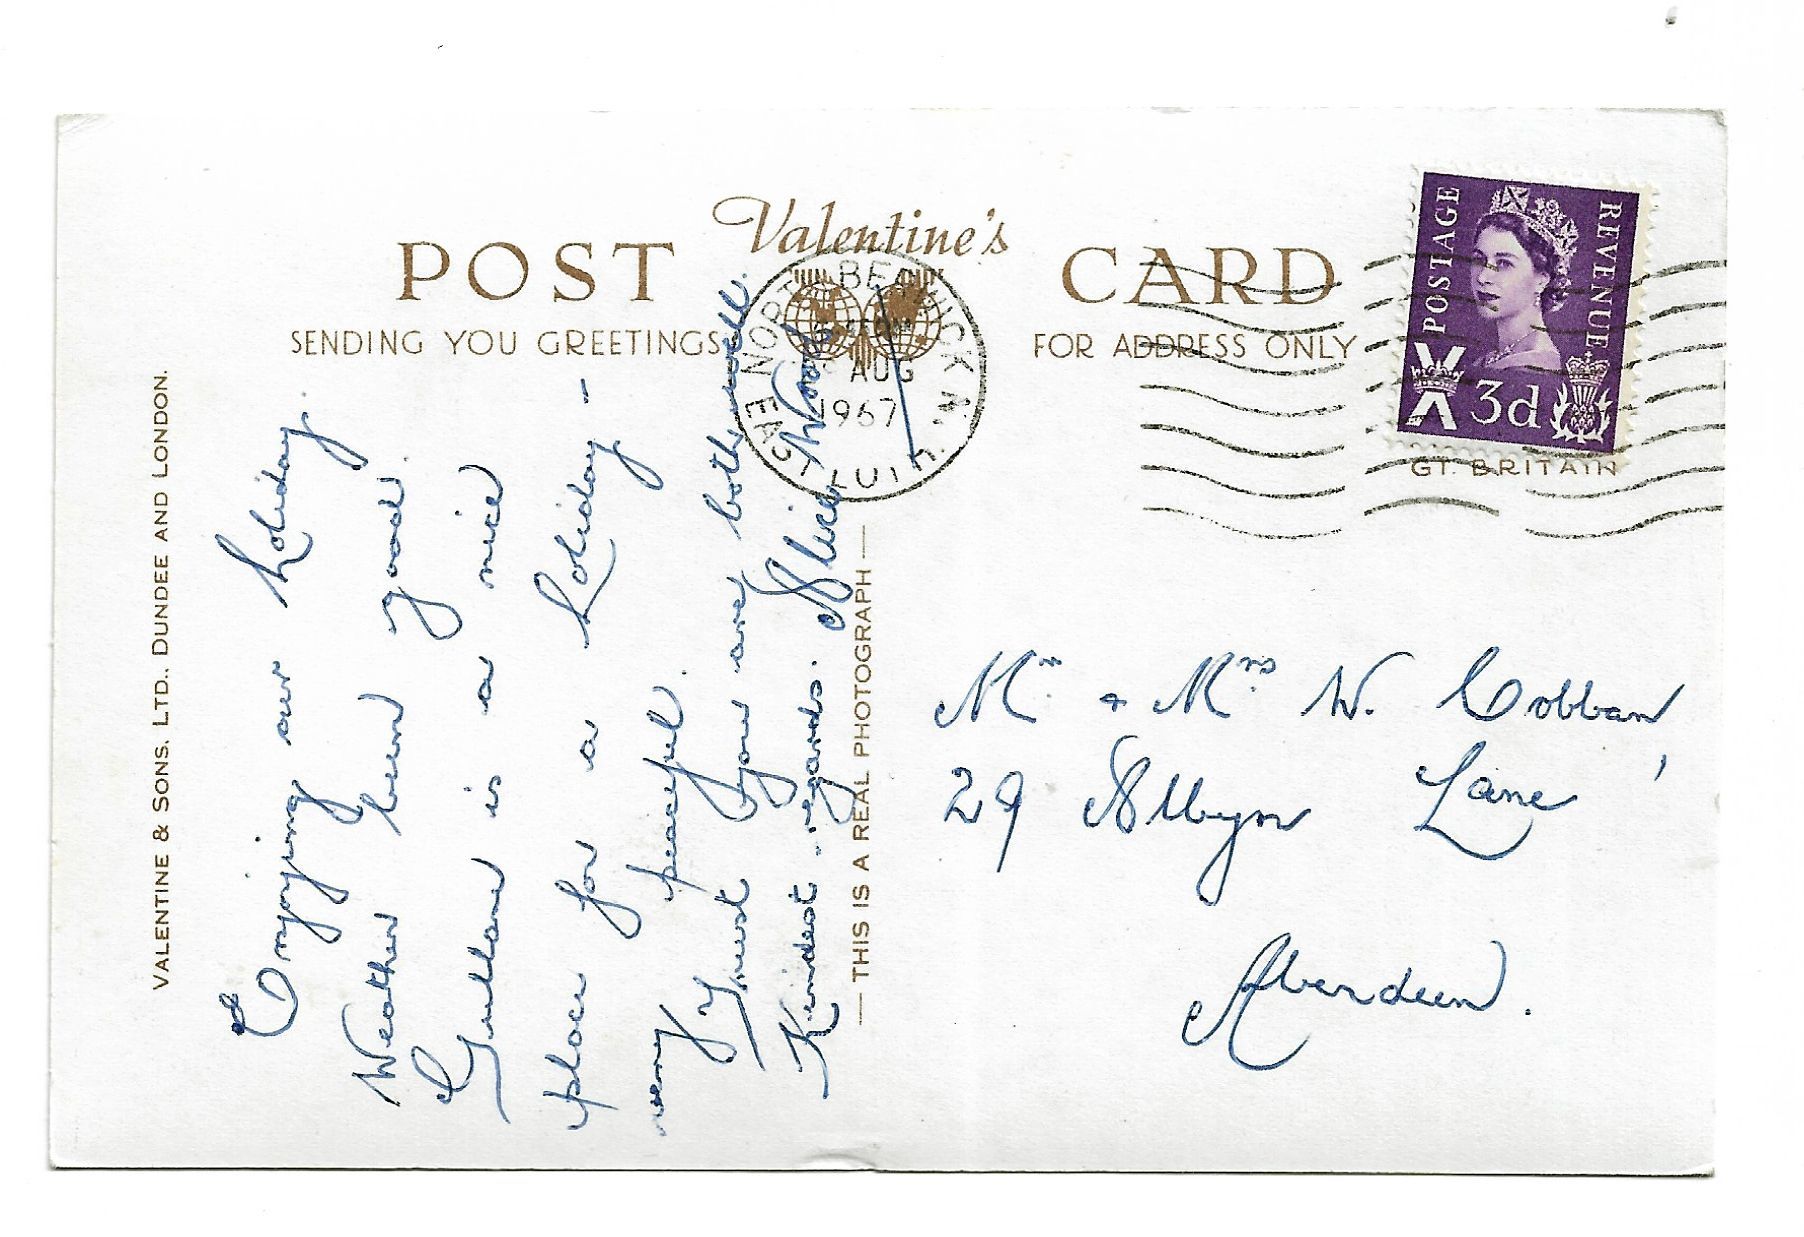 Valentine's
POST CARD
SENDING YOU GREETINGS
FOR ADDRESS ONLY
POSTAGE
REVENUE
3d
GT. BRITAIN
NORTH BERWICK
EAST
AUG
1967
VALENTINE & SONS. LTD., DUNDEE AND LONDON.
Enjoying our holiday.
Weather been good
Gullane is a nice
place for a holiday -
very peaceful.
Trust you are both well.
Kindest regards. Alice
— THIS IS A REAL PHOTOGRAPH —
Mr. + Mrs. W. Cobban
29 Albyn Lane,
Aberdeen.